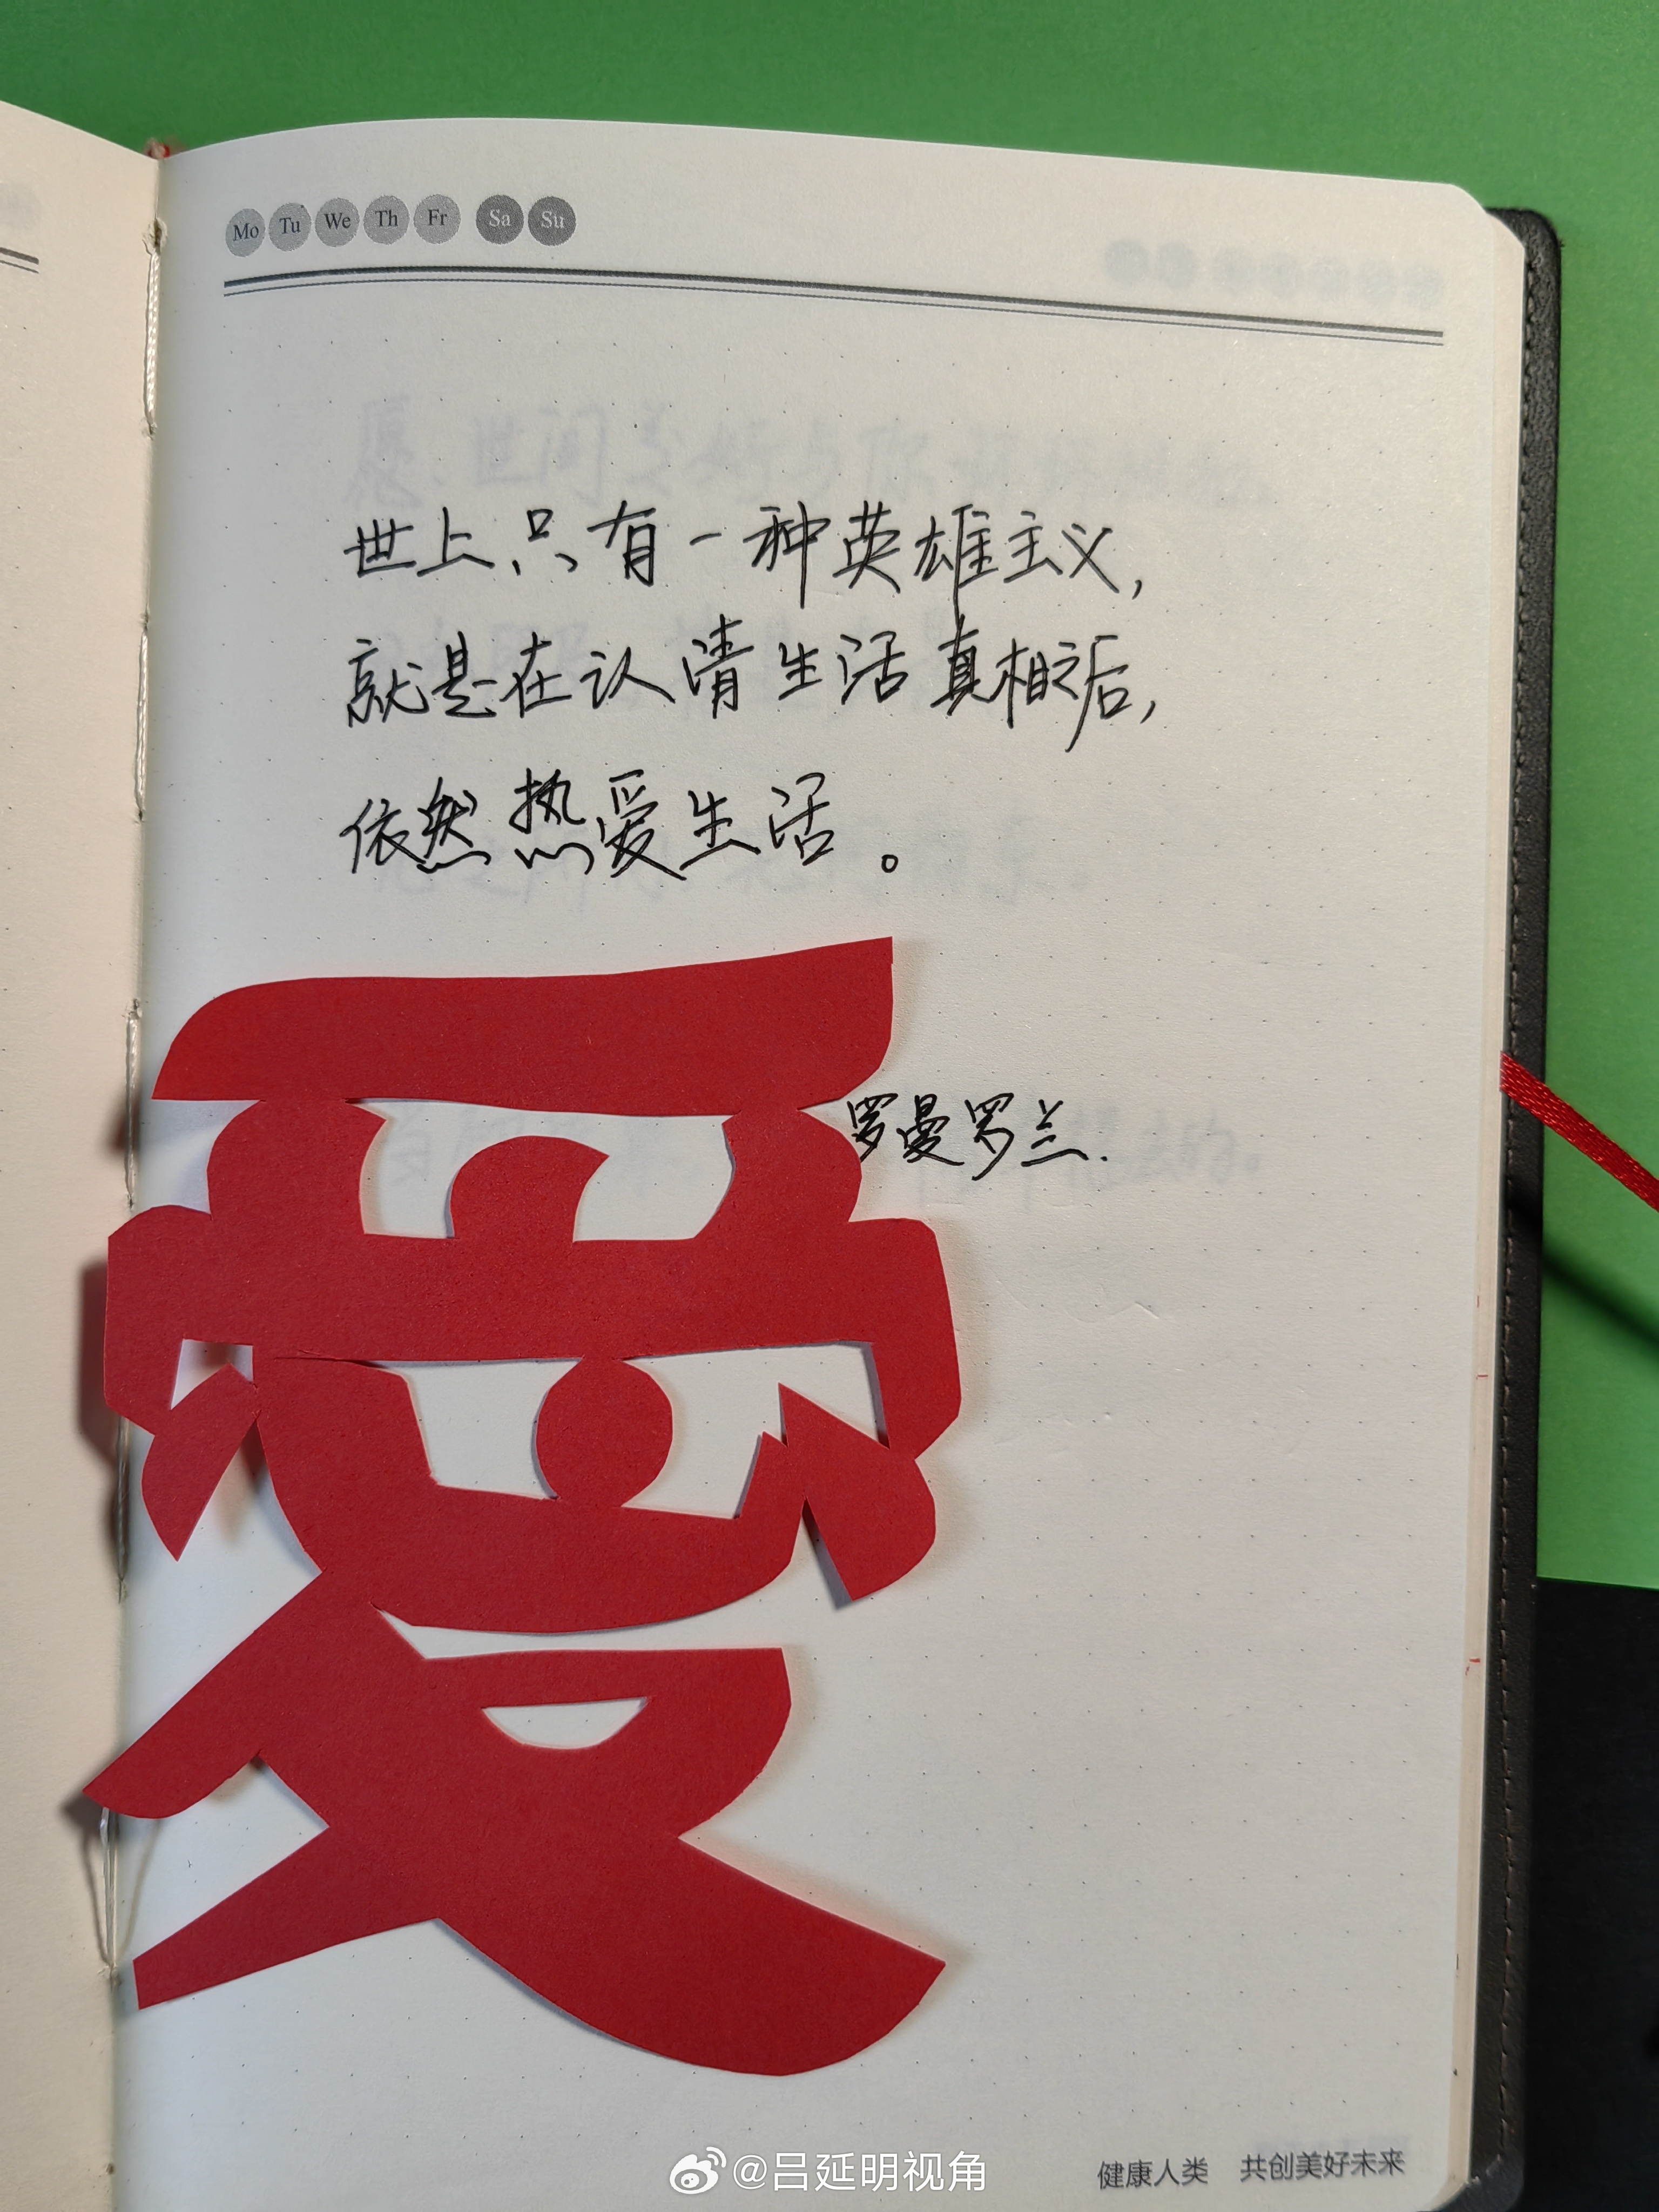 Mo Tu We Th Fr Sa Su
世上,只有一种英雄主义,
就是在认清生活真相之后,
依然热爱生活。
罗曼罗兰.
爱
@吕延明视角
健康人类 共创美好未来